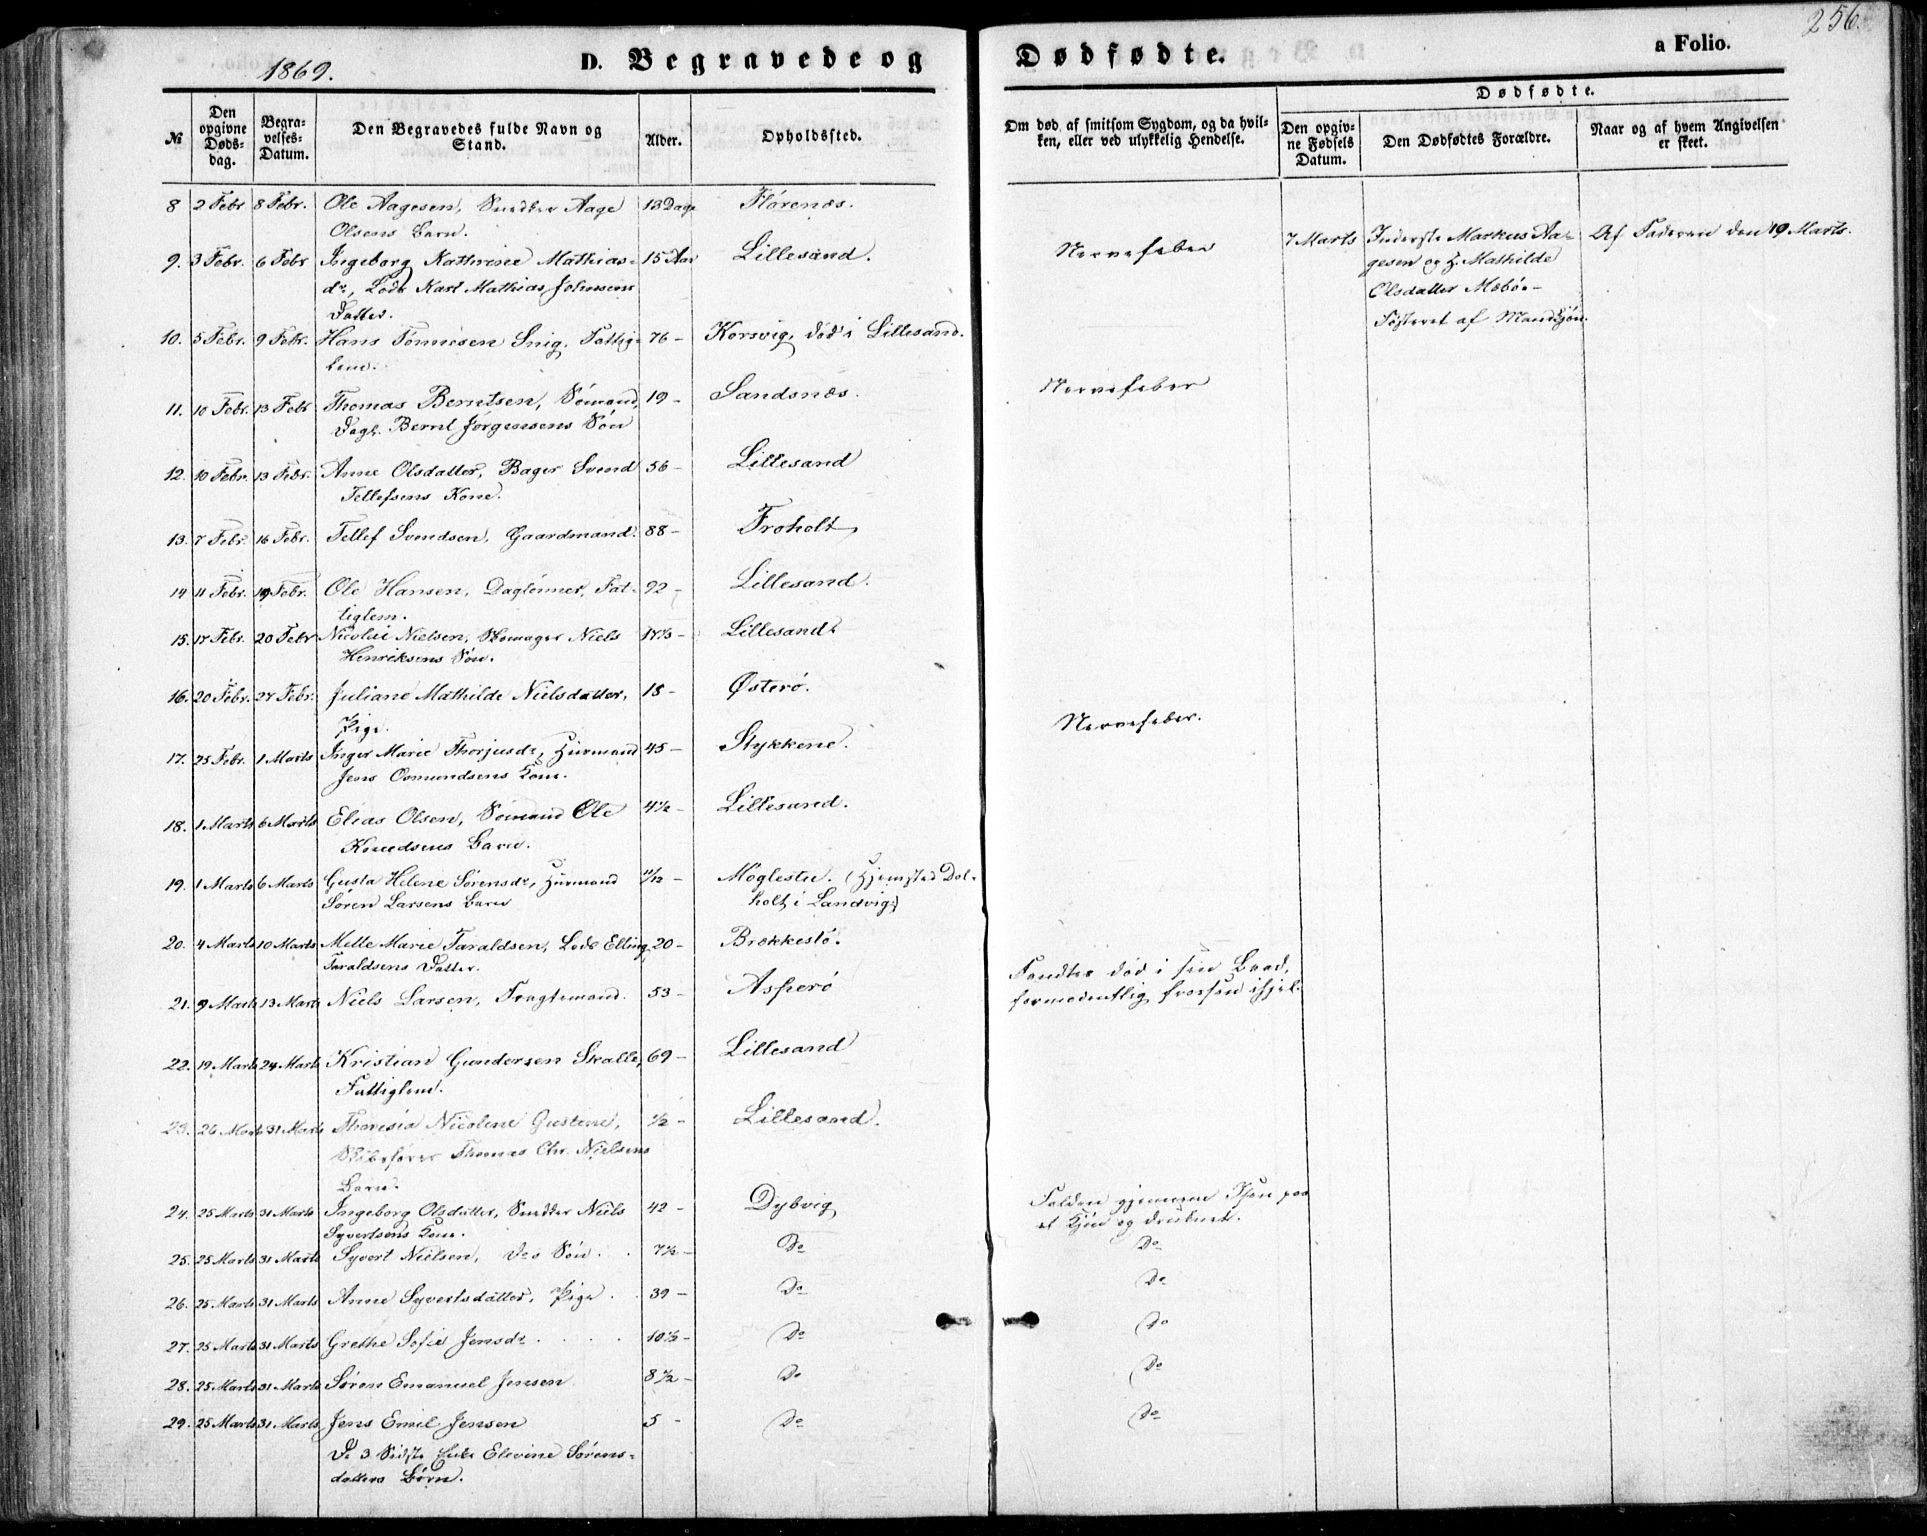 1869.
D. Begravede og Dødfødte.
a Folio.
256.
№
Den opgivne Døds-dag.
Begra-velses-Datum.
Den Begravedes fulde Navn og Stand.
Alder.
Opholdssted.
Om død af smitsom Sygdom, og da hvil-
ken, eller ved ulykkelig Hendelse.
Dødfødte.
Den opgiv-ne Fødsels Datum.
Den Dødfødtes Forældre.
Naar og af hvem Angivelsen er skeet.
8 2 Febr 8 Febr. Ole Aagesen, Snedker Aage 13 Dage Flørenæs.
Olsens Barn.
9. 3 Febr. 6 Febr Ingeborg Kathrine Mathias- 15 Aar Lillesand. Nervefeber
dr, Lods Karl Mathias Johnsens
Datter.
7 Marts Inderste Markus Aa- Af Faderen den 19 Marts.
gesen og H. Mathilde
Olsdatter Mæbø.-
Fosteret af Mandkjøn.
10. 5 Febr. 9 Febr. Hans Tønnesen Snig, Fattig- 76 - Korsvig, død i Lillesand.
lem.
11. 10 Febr. 13 Febr Thomas Berntsen, Sømand, 19 - Sandsnæs. Nervefeber
Dagl. Bernt Jørgensens Søn
12. 10 Febr. 13 Febr. Anne Olsdatter, Bager Svend 56 - Lillesand
Tellefsens Kone.
13. 7 Febr. 16 Febr. Tellef Svendsen, Gaardmand. 88 - Froholt
14 11 Febr. 19 Febr. Ole Hansen, Daglønner, Fat- 92 - Lillesand.
tiglem.
15. 17 Febr. 20 Febr Nicolai Nielsen, Skomager Niels 17½ - Lillesand
Henriksens Søn.
16. 20 Febr. 27 Febr. Juliane Mathilde Nielsdatter, 18 - Østerø.
Pige. Nervefeber.
17. 25 Febr. 1 Marts Inger Marie Thorjusdr, Huusmand 45 - Stykkene.
Jens Osmundsens Kone.
18. 1 Marts 6 Marts Elias Olsen, Sømand Ole 4½ - Lillesand.
Knudsens Barn.
19. 1 Marts 6 Marts Gusta Helene Sørensdr, Huusmand 11/12 - Moglestu. (Hjemsted Dol-
Søren Larsens Barn holt i Landvig)
20. 4 Marts 10 Marts Mette Marie Taraldsen, Lods Elling 20 - Brekkestø.
Taraldsens Datter.
21. 9 Marts 13 Marts Niels Larsen, Fragtemand. 53 - Asperø Fandtes død i sin Baad,
formodentlig frossen ihjel.
22. 19 Marts 24 Marts Kristian Gundersen Skalle, 69 - Lillesand
Fattiglem.
23. 26 Marts 31 Marts Theresia Nicoline Gustine, ½ - Lillesand.
Skibsfører Thomas Chr. Nielsens
Barn.
24. 25 Marts 31 Marts Ingeborg Olsdatter, Snedker Niels 42 - Dybvig Falden gjennem Isen paa
Syvertsens Kone. et Kjøn og druknet.
25. 25 Marts 31 Marts Syvert Nielsen, Ds Søn. 7½ - Do Do
26. 25 Marts 31 Marts Anne Syvertsdatter, Pige 39 - Do Do
27. 25 Marts 31 Marts Grethe Sofie Jensdr 10½ - Do Do
28. 25 Marts 31 Marts Søren Emanuel Jensen 8½ - Do Do
29. 25 Marts 31 Marts Jens Emil Jensen 5 - Do Do
De 3 Sidste Enke Elevine Sørens-
datters Børn.